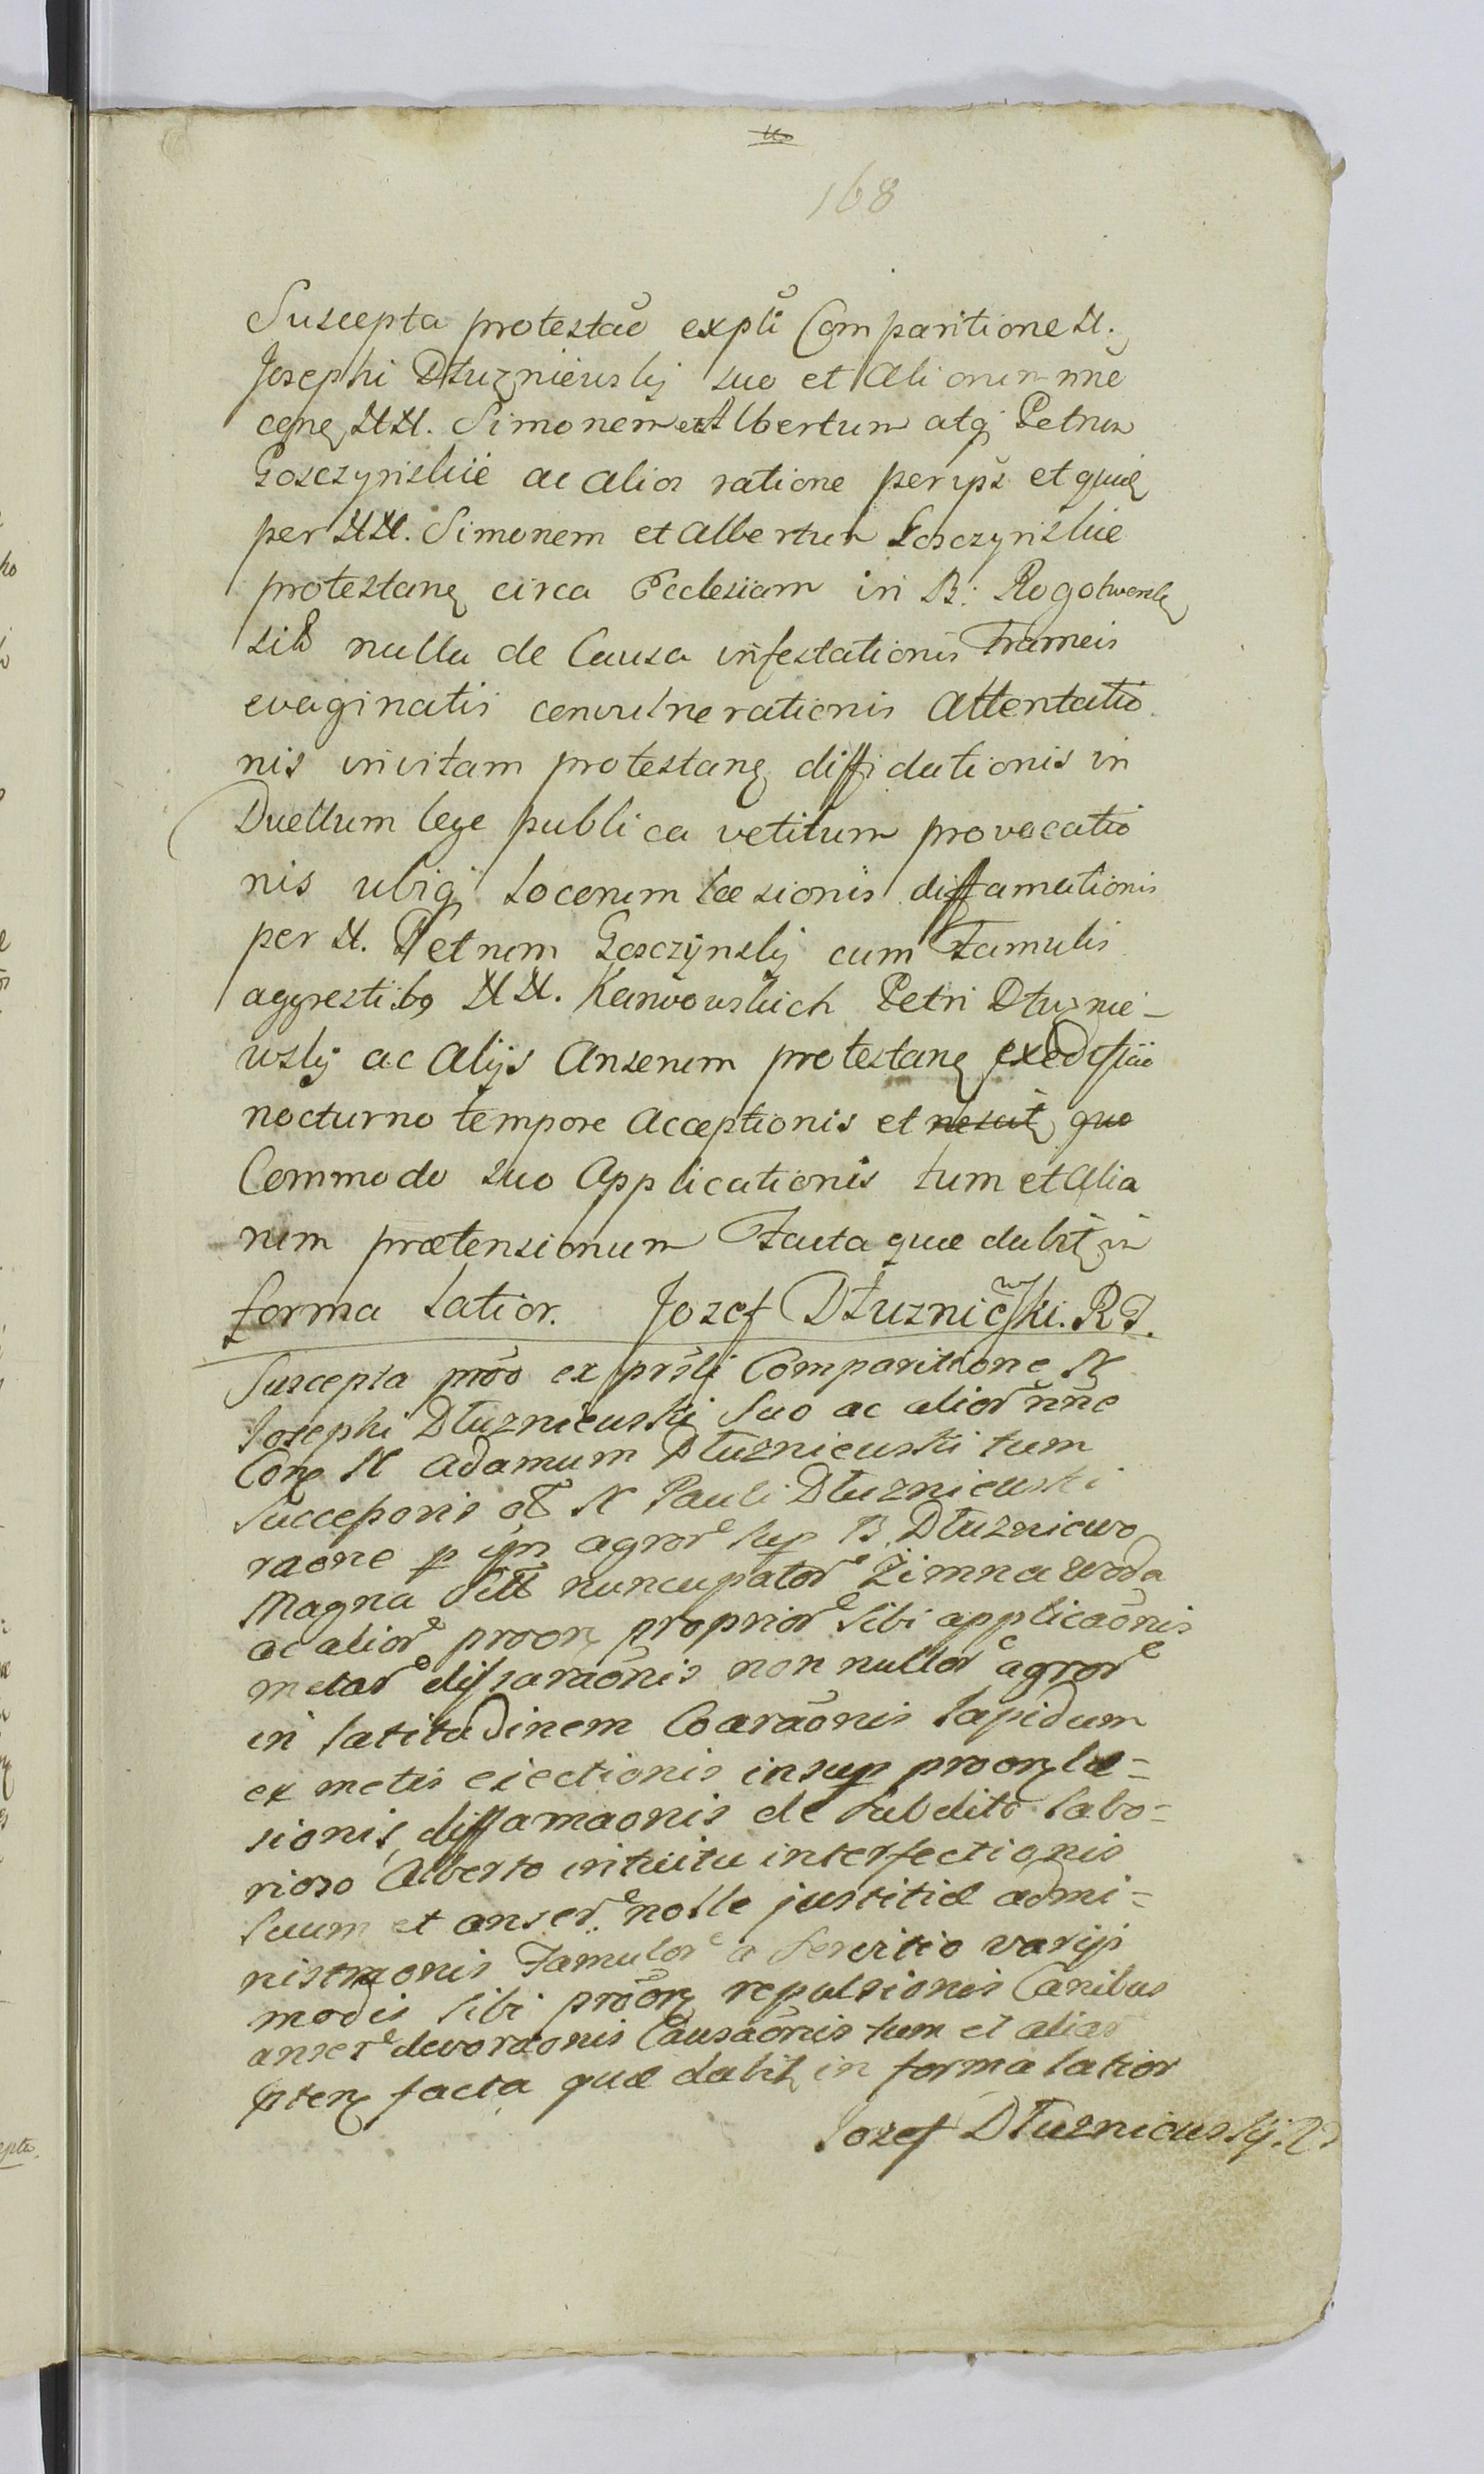 168
Suscepta protestaō expli Comparitione N.
Josephi Dłuzniewskij suo et Aliorum nne
cone NN. Simonem et Albertum atq Petrum
Gosczynskie ac alios ratione per ips et quidē
per NN. Simonem et Albertum Gosczynskie
protestane circa Ecclesiam in B:
sitt nulla de Causa infestationis Frameis
evaginatis convulnerationis Attentatio
nis in vitam protestane diffidationis in
Duellum lege publica vetitum provocatio
nis ubiq locorum læsionis diffamationis
per N. Petrum Gosczÿnskij cum Famulis
aggrestibq NN. Karwowskich Petri Dłuznie-
wskij ac Alijs Anserum protestane ex
nocturno tempore Acceptionis et
Commodo suo Applicationis tum et Alia
rum prætensionum Facta quæ dabit in
forma latior. Jozef Dłuzniewski. RP.
Suscepta proō ex prsli Comparitione N
Josephi Dłuzniewski Suo ac alior nne
Con N Adamum Dłuzniewski tum
Successoris ol N Pauli Dłuzniewski
raone p ips agror sup B. Dłuzniewo
Magna sitt nuncupator Zimna woda
ac alior proon proprior Sibi applicaōnis
metar dissaraōnis non nullor agror
in latitudinem Coaraōnis lapidum
ex metis eiectionis insup proon læ=
sionis, diffamaonis de Subdito labo=
rioso Alberto intuitu interfectionis
Suum et anser nolle justitiæ admi=
nistraonis Famulor a Servitio varijs
modis Sibi proon repulsionis Canibus
anser devoraonis Causaōnis tum et aliar
pten facta quæ dabit in forma latior
Jozef Dłuzniewskij.